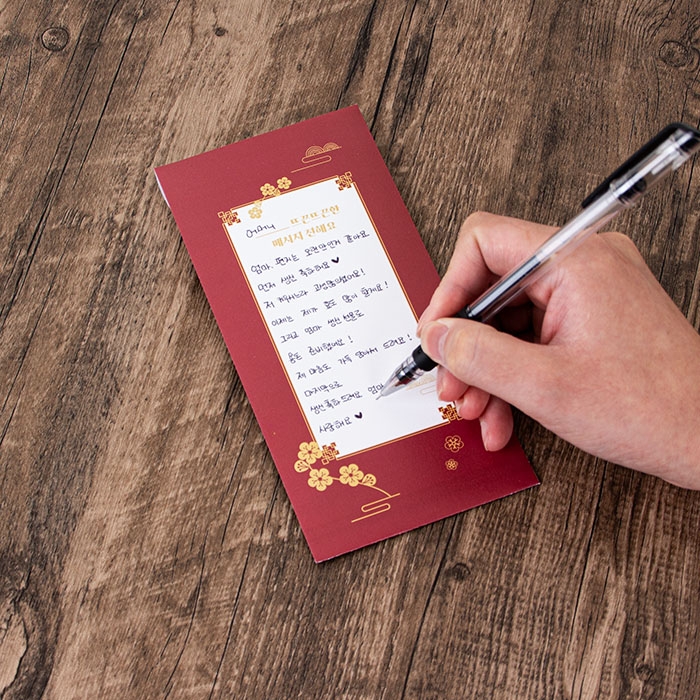 어머니 뜨끈뜨끈한
메시지 전해요
엄마. 편지는 오랜만인거 같아요
먼저 생신 축하해요 ♥
저 키우시느라 고생많으셨어요!
이제는 제가 효도 많이 할게요!
그리고 엄마 생신 선물로
용돈 준비했어요!
제 마음도 가득 담아서 드려요!
마지막으로
생신축하드려요 엄마
사랑해요 ♥